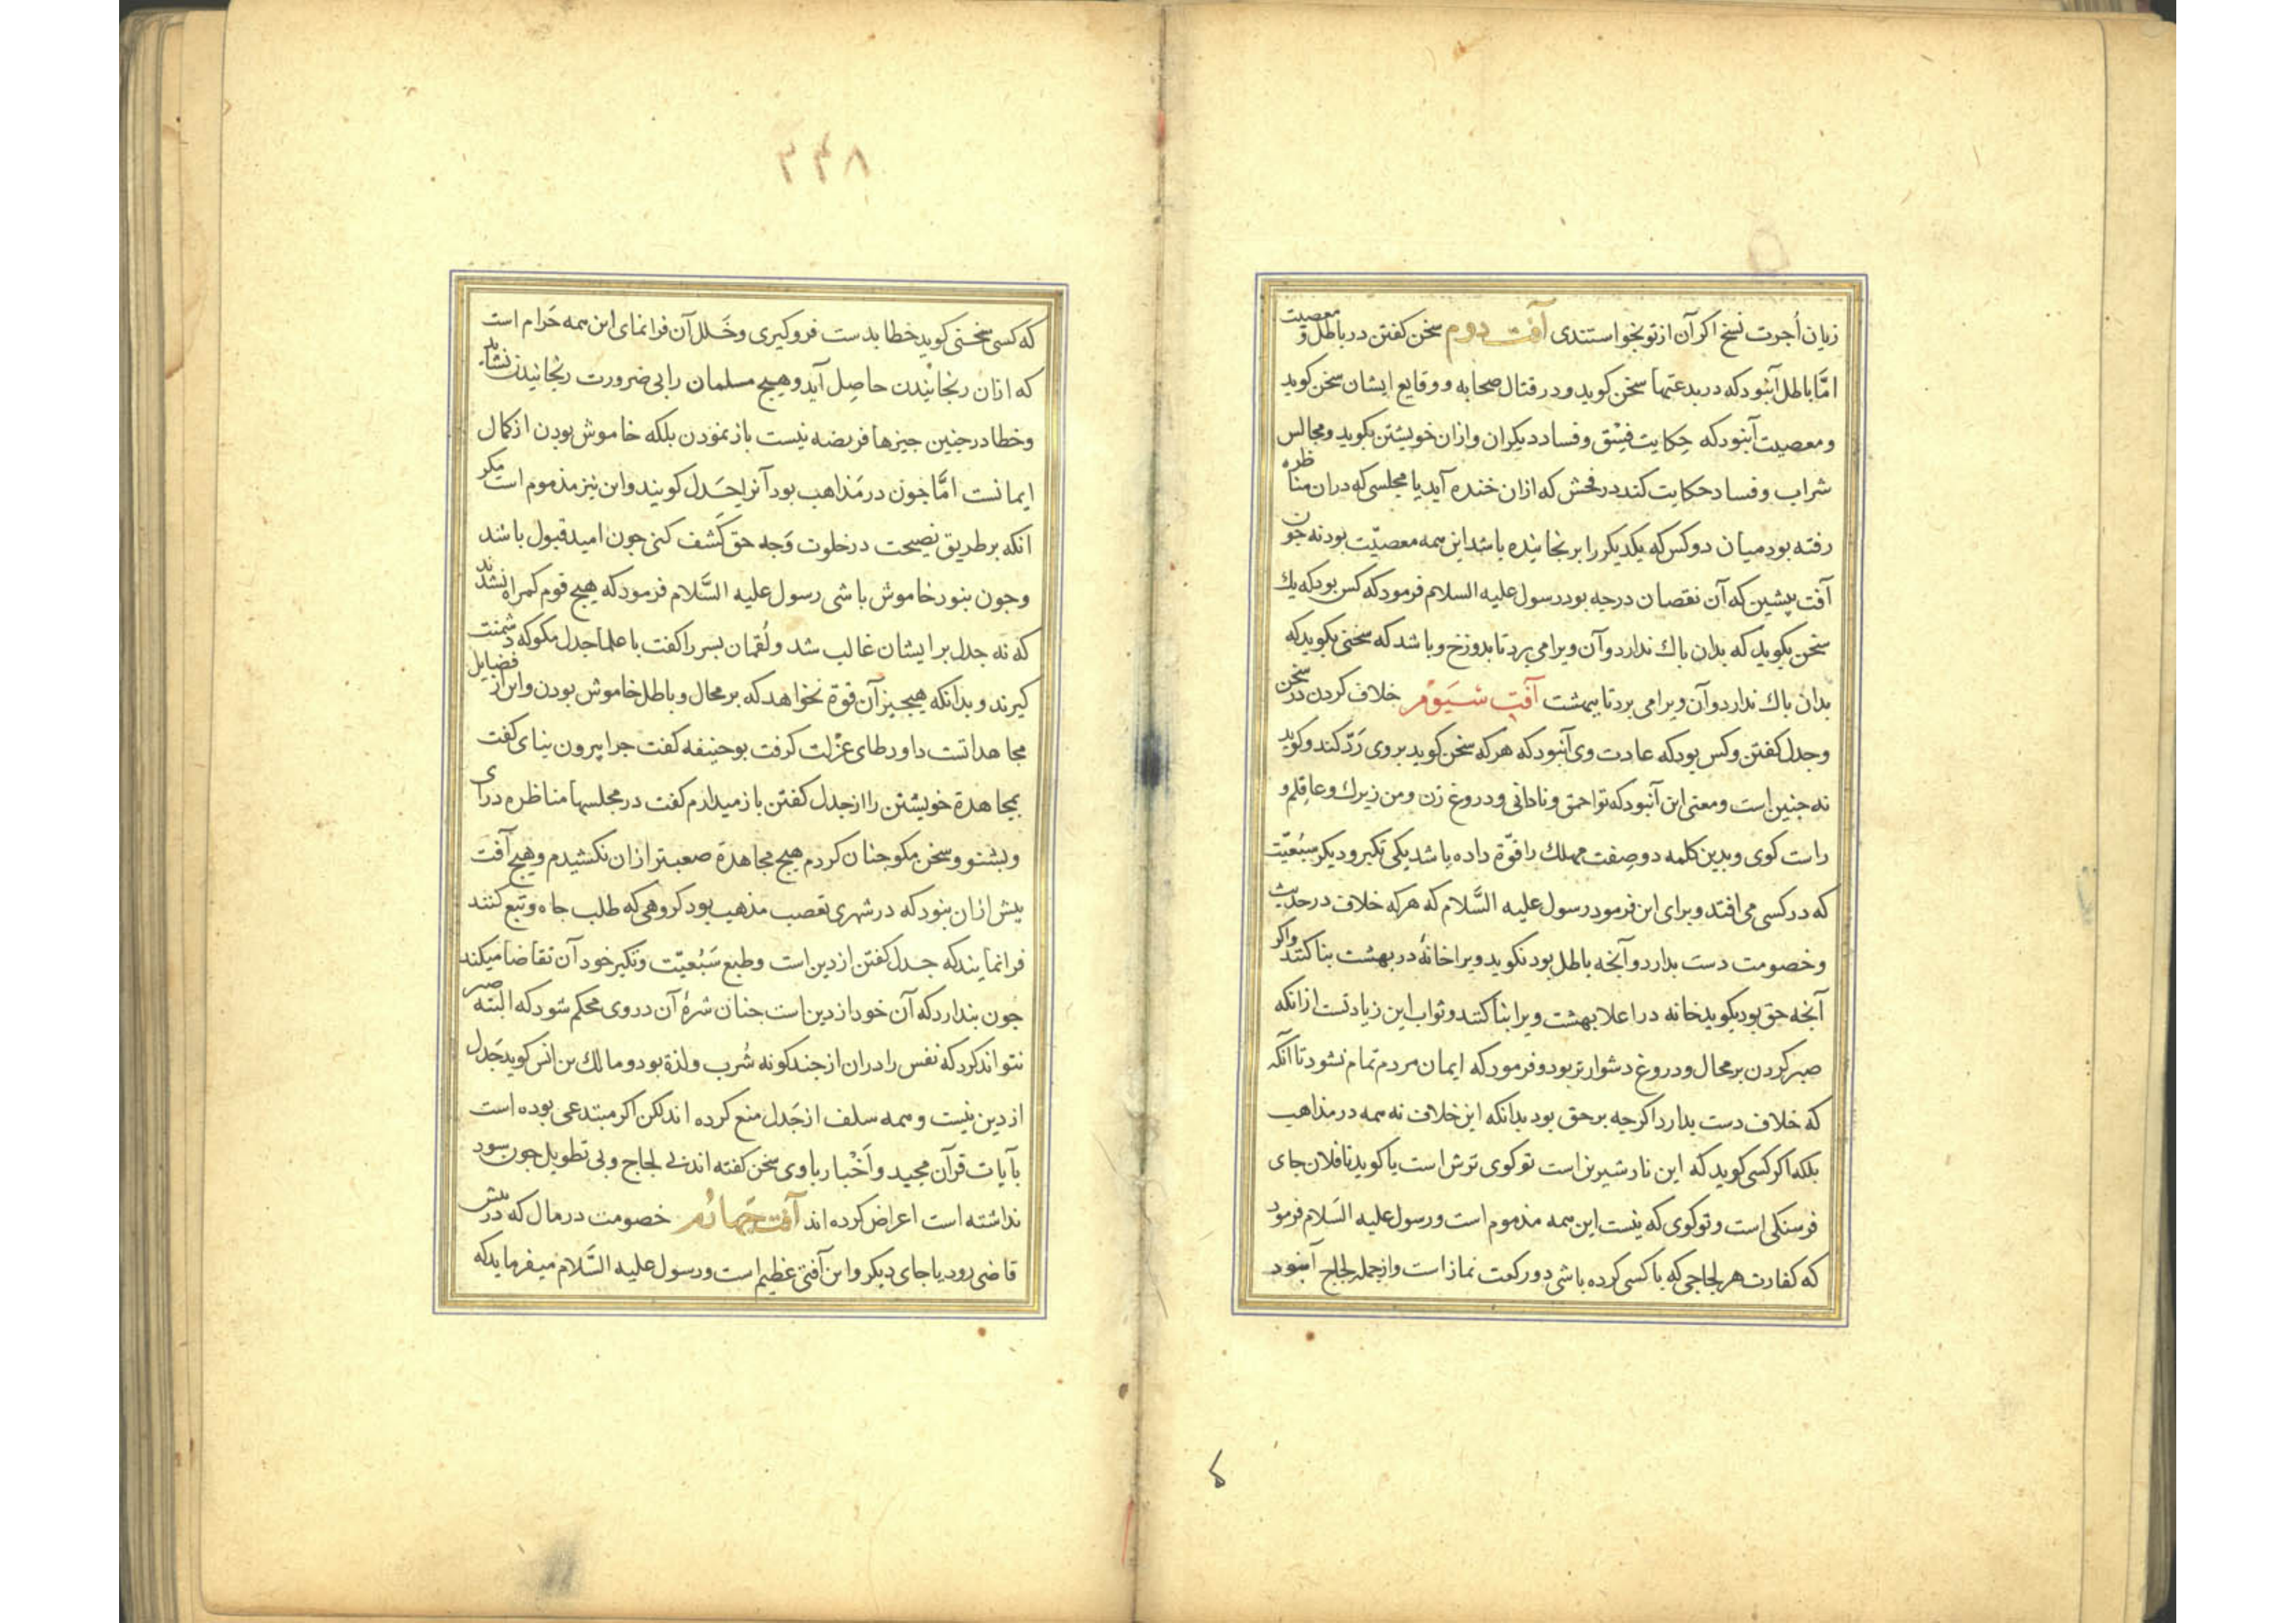 زیان اُجرت نسخ اکر آن از تو نخواستندی آفت دوم سخن کفتن در باطل و معصیت
امّا باطل آنبود که در بدعتها سخن کوید و در قتال صحابه و وقایع ایشان سخن کوید
و معصیت آنبود که حکایت فسْق و فساد دیکران و ازان خویشتن بکوید و مجالس
شراب و فساد حکایت کند در فحش که ازان خنده آید یا مجلسی که دران مناظره
رفته بود میان دو کس که یکدیکر را برنجانیده باشد این همه معصیّت بود نه جون
آفت پیشین که آن نقصان درجه بود رسول علیه السلام فرمود که کس بود که یك
سخن بکوید که بدان باك ندارد و آن ویرا می برد تا بدوزخ و باشد که سخنی بکوید که
بدان باك ندارد و آن ویرا می برد تا ببهشت آفت سیَوم خلاف کردن در سخن
و جدل کفتن و کس بود که عادت وی آنبود که هر که سخن کوید بر وی رَدّ کند و کوید
نه جنین است و معنی این آنبود که تو احمق و نادانی و دروغ زن و من زیرك و عاقلم و
راست کوی و بدین کلمه دو صفت مهلك را قوّة داده باشد یکی تکبر و دیکر سَبُعیّت
که در کسی می افتد و برای این فرمود رسول علیه السَّلام که هر که خلاف در حدیث
و خصومت دست بدارد و آنجه باطل بود نکوید ویرا خانهٔ در بهشت بنا کنند واکر
آنجه حق بود بکوید خانه در اعلا بهشت ویرا بنا کنند و ثواب این زیادتست ازانکه
صبر کردن بر محال و دروغ دشوارتر بود و فرمود که ایمان مردم تمام نشود تا آنکه
که خلاف دست بدارد اکرجه بر حق بود بدانکه این خلاف نه همه در مذاهب
بلکه اکر کسی کوید که این نار شیرین است تو کوی ترش است یا کوید تا فلان جای
فرسنکی است و تو کوی که نیست این همه مذموم است و رسول علیه السَلام فرمود
که کفارت هر لجاجی که با کسی کرده باشی دو رکعت نماز است و از جمله لجاج آنبود
۳۴۸
که کسی سخنی کوید خطا بدست فرو کیری و خَلل آن فرا نمای این همه حَرام است
که ازان رنجانیدن حاصل آید و هیج مسلمان را بی ضرورت رنجانیدن نشاید
و خطا در جنین جیزها فریضه نیست باز نمودن بلکه خاموش بودن از کمال
ایمانست امَّا جون در مَذاهب بود آنرا جَدل کویند و این نیز مذموم است مکر
انکه بر طریق نصیحت در خلوت وَجه حق کَشف کنی جون امید قبول باشد
و جون نبود خاموش باشی رسول علیه السَّلام فرمود که هیج قوم کمراه نشدند
که نه جدل بر ایشان غالب شد و لُقمان بسر را کفت با علما جدل مکو که دشمنت
کیرند و بدانکه هیججیز آن قوّة نخواهد که بر محال و باطل خاموش بودن و این از فضایل
مجاهداتست داود طای عُزْلت کرفت بوحنیفه کفت جرا بیرون نیای کفت
بمجاهدة خویشتن را از جدل کفتن باز میدارم کفت در مجلسها مناظره درآی
و بشنو و سخن مکو جنان کردم هیج مجاهدة صعبتر ازان نکشیدم و هیج آفت
بیش ازان نبود که در شهری تعصب مذهب بود کروهی که طلب جاه و تبع کنند
فرا نمایند که جدل کفتن از دین است و طبع سَبُعیّت و تکبر خود آن تقاضا میکند
جون بندارد که آن خود از دین است جنان شرهٔ آن در وی محکم شود که البته صبر
نتواند کرد که نفس را دران از جندکونه شُرب و لذة بود و مالك بن انس کوید جَدل
از دین نیست و همه سلف از جَدل منع کرده اند لکن اکر مبتدعی بوده است
بآیات قرآن مجید و اَخْبار با وی سخن کفته اند بی لجاج و بی تطویل جون سود
نداشته است اعراض کرده اند آفت جهارُم خصومت در مال که در بیش
قاضی رود یا جای دیکر و این آفتی عظیم است و رسول علیه السَّلام میفرماید که